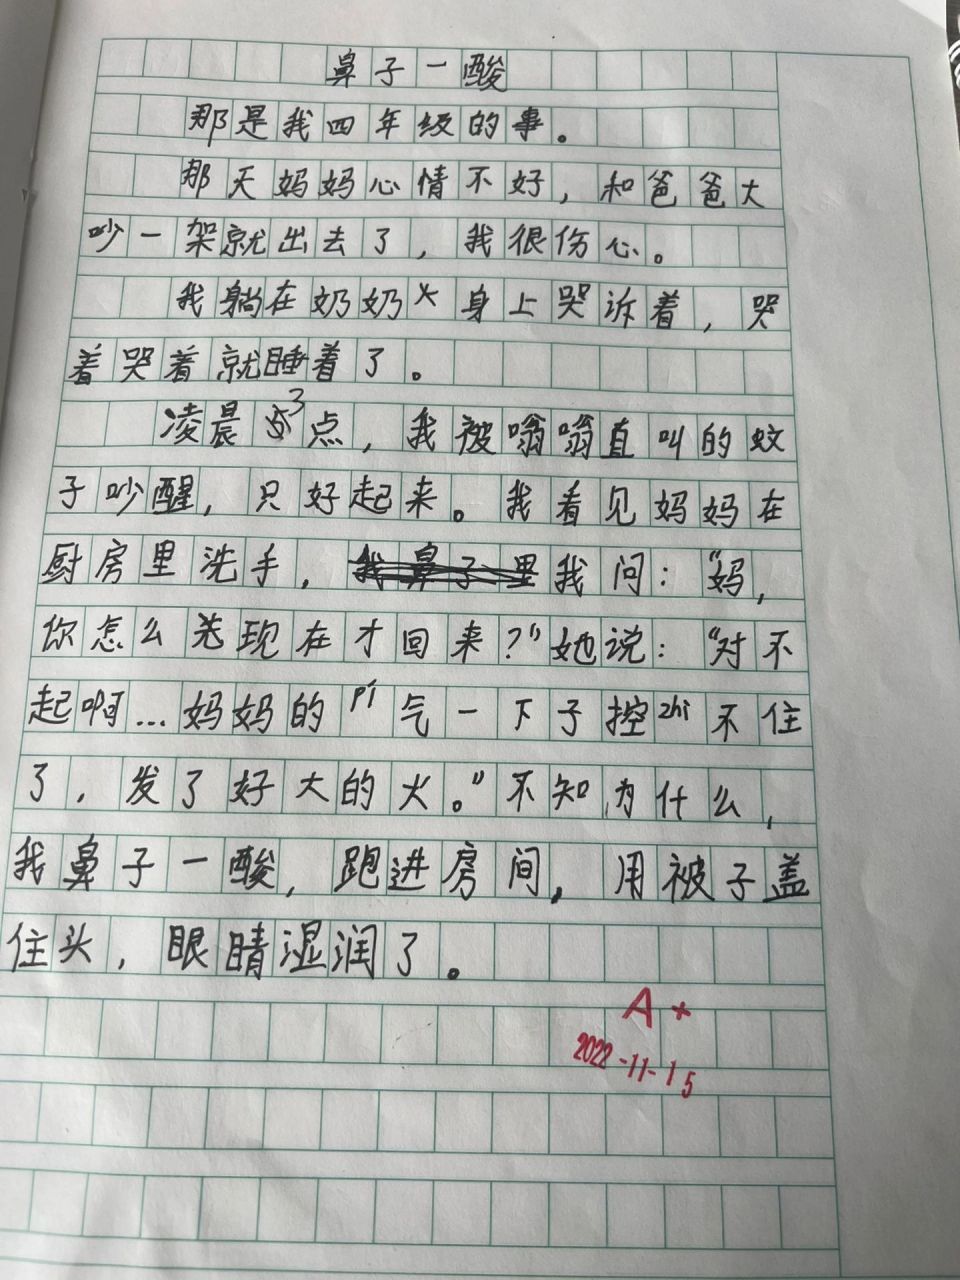 鼻子一酸
那是我四年级的事。
那天妈妈心情不好，和爸爸大
吵一架就出去了，我很伤心。
我躺在奶奶身上哭诉着，哭
着哭着就睡着了。
凌晨3点，我被嗡嗡直叫的蚊
子吵醒，只好起来。我看见妈妈在
厨房里洗手，我问：“妈，
你怎么现在才回来？”她说：“对不
起啊…妈妈的pí气一下子控zhì不住
了，发了好大的火。”不知为什么，
我鼻子一酸，跑进房间，用被子盖
住头，眼睛湿润了。
A+
2022-11-15